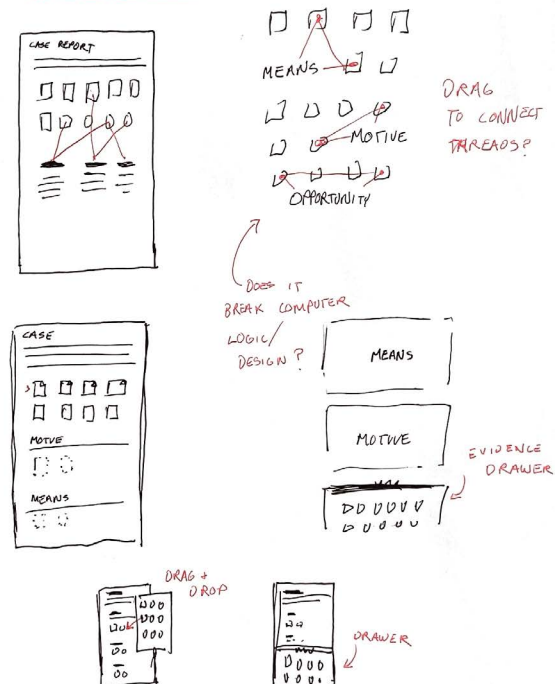 CASE REPORT
MEANS
MOTIVE
OPPORTUNITY
DRAG
TO CONNECT
THREADS?
DOES IT
BREAK COMPUTER
LOGIC/
DESIGN?
CASE
MOTIVE
MEANS
MEANS
MOTIVE
EVIDENCE
DRAWER
DRAG +
DROP
DRAWER